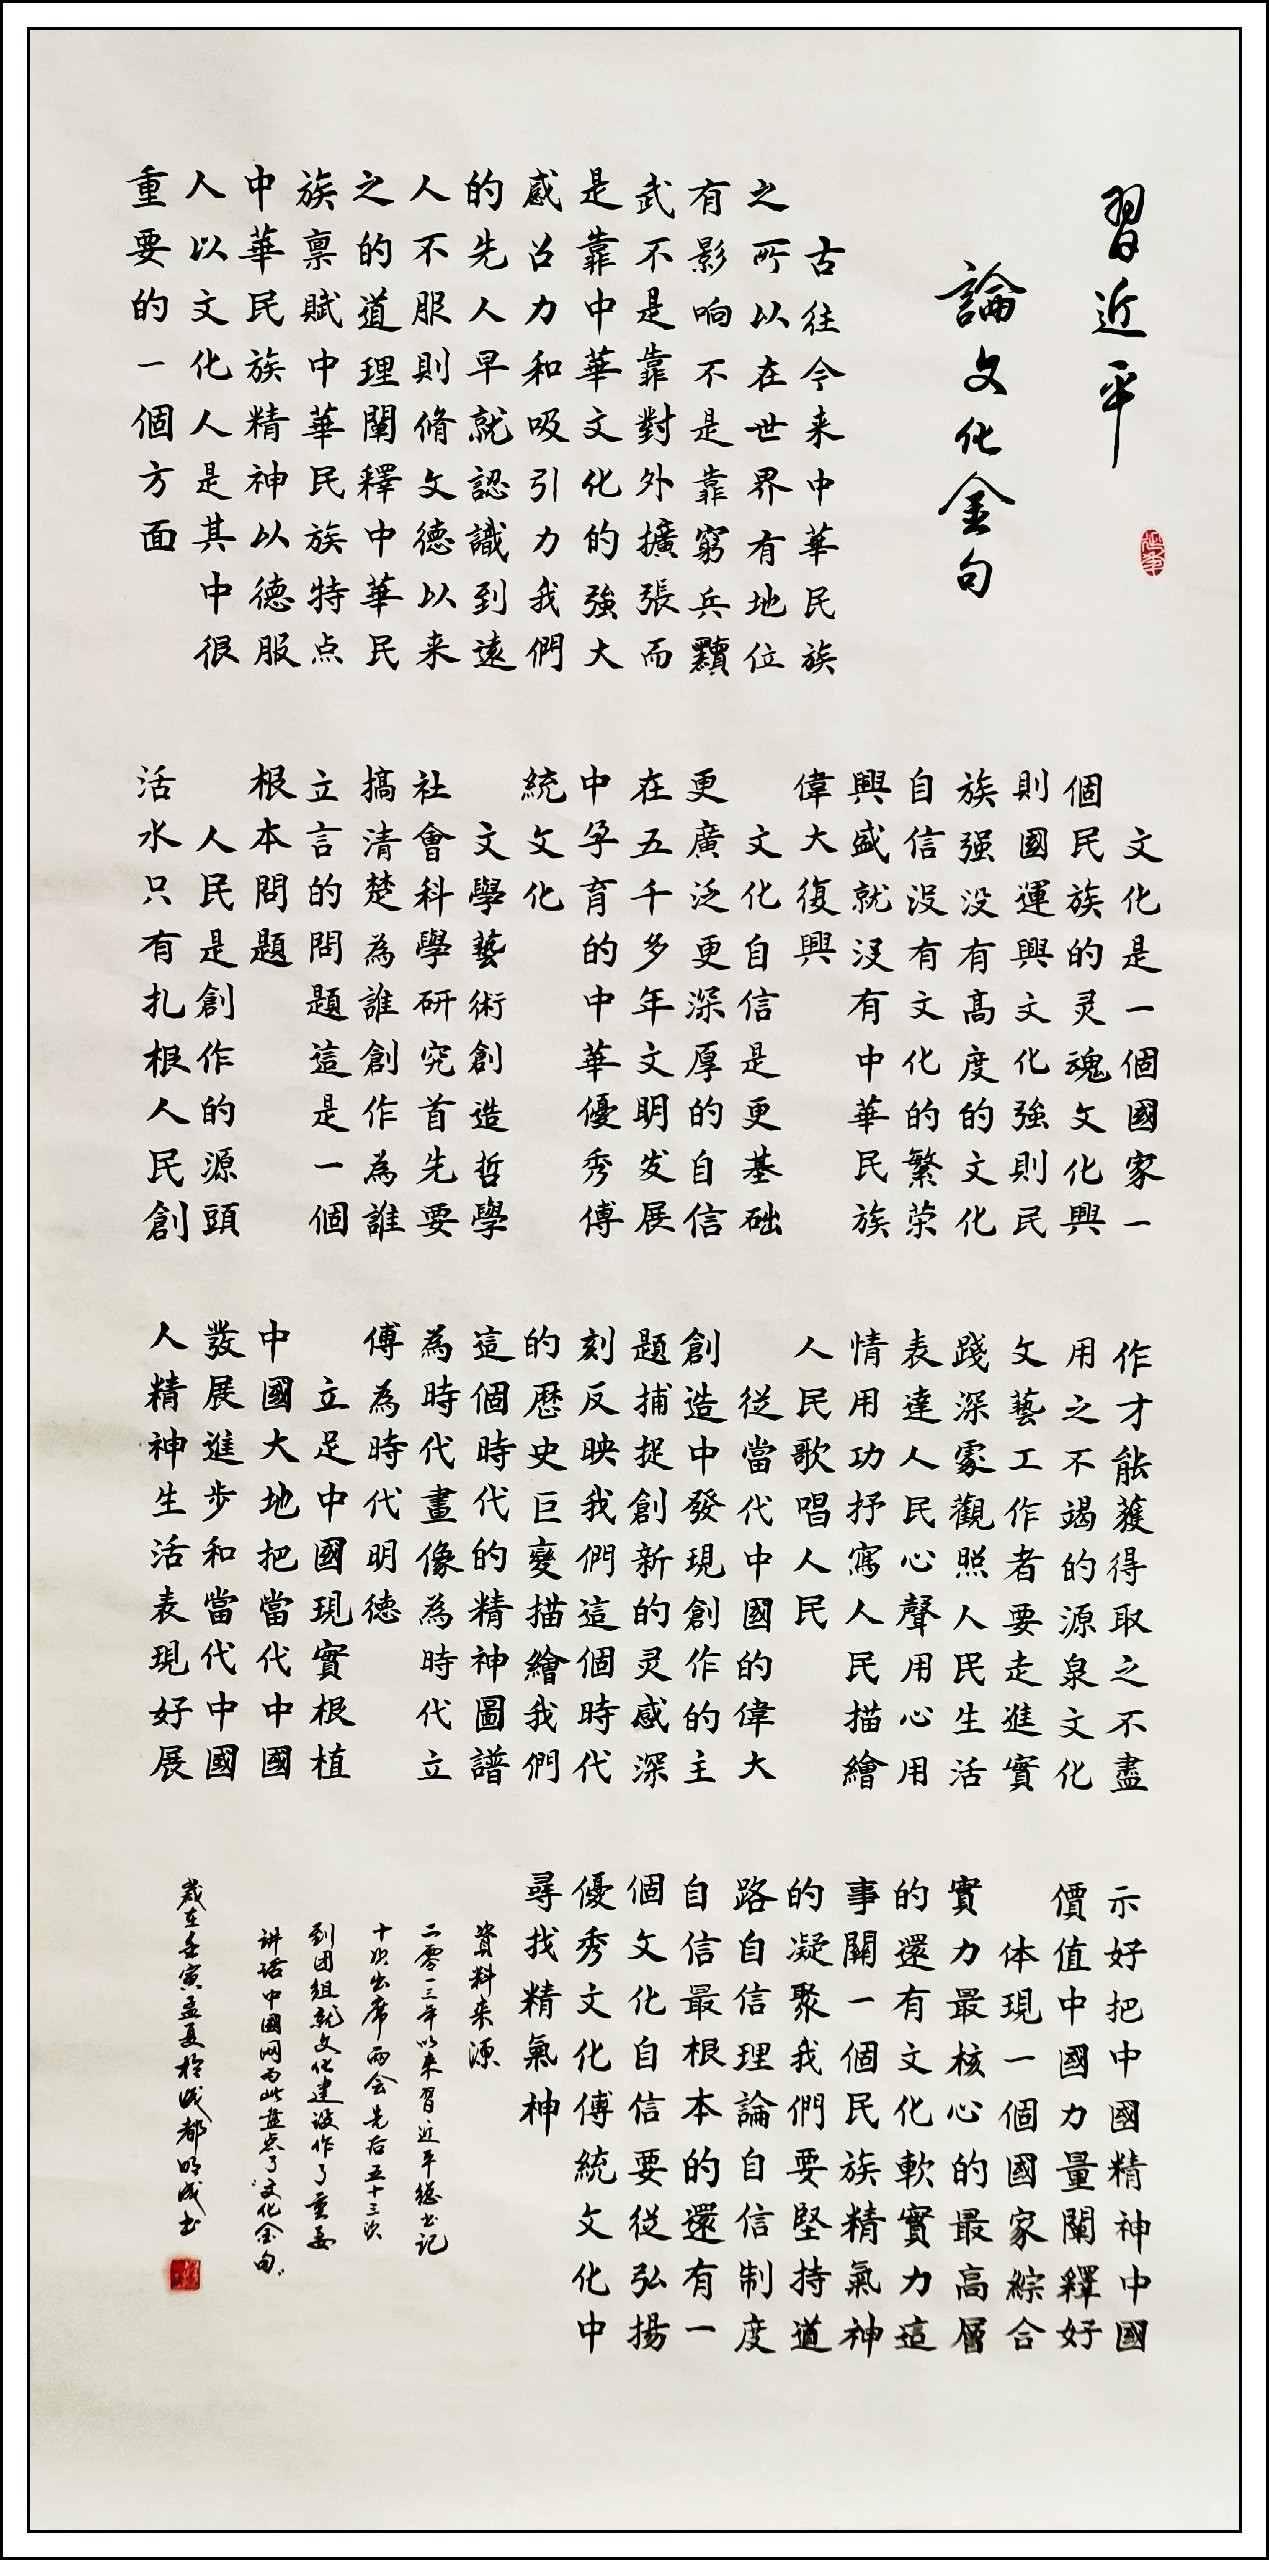 習近平
論文化金句
古往今来中華民族
之所以在世界有地位
有影响不是靠窮兵黷
武不是靠對外擴張而
是靠中華文化的強大
感召力和吸引力我們
的先人早就認識到遠
人不服則脩文德以来
之的道理闡釋中華民
族禀賦中華民族特点
中華民族精神以德服
人以文化人是其中很
重要的一個方面
文化是一個國家一
個民族的灵魂文化興
則國運興文化強則民
族强没有高度的文化
自信没有文化的繁荣
興盛就没有中華民族
偉大復興
文化自信是更基础
更廣泛更深厚的自信
在五千多年文明发展
中孕育的中華優秀傳
統文化
文學藝術創造哲學
社會科學研究首先要
搞清楚為誰創作為誰
立言的問題這是一個
根本問題
人民是創作的源頭
活水只有扎根人民創
作才能獲得取之不盡
用之不竭的源泉文化
文藝工作者要走進實
踐深處觀照人民生活
表達人民心聲用心用
情用功抒寫人民描繪
人民歌唱人民
從當代中國的偉大
創造中發現創作的主
題捕捉創新的灵感深
刻反映我們這個時代
的歷史巨變描繪我們
這個時代的精神圖譜
為時代畫像為時代立
傳為時代明德
立足中國現實根植
中國大地把當代中國
發展進步和當代中國
人精神生活表現好展
示好把中國精神中國
價值中國力量闡釋好
体現一個國家綜合
實力最核心的最高層
的還有文化軟實力這
事關一個民族精氣神
的凝聚我們要堅持道
路自信理論自信制度
自信最根本的還有一
個文化自信要從弘揚
優秀文化傳統文化中
尋找精氣神
資料来源
二零一三年以来習近平總书记
十次出席兩会先后五十三次
到团组就文化建设作了重要
讲话中國网为此盘点了文化金句
歲在壬寅孟夏於成都明成书